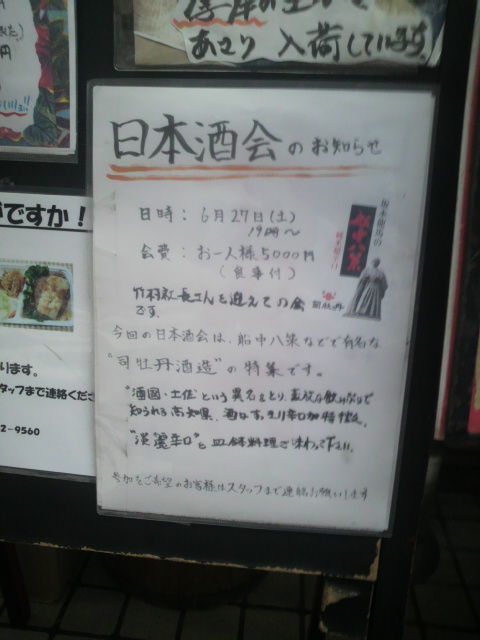 厚岸の
あさり 入荷しています
円
ですか！
ります。
スタッフまで連絡くださ
2-9560
日本酒会のお知らせ
日時：6月27日(土)
19時～
会費：お一人様5000円
(食事付)
竹村社長さんを迎えての会
です。
坂本龍馬の
船中八策
司牡丹
今回の日本酒会は、船中八策などで有名な
"司牡丹酒造"の特集です。
"酒国・土佐"という異名をとり、豪放な飲みっぷりで
知られる高知県、酒は
辛口が特徴。
"淡麗辛口"と皿鉢料理ご味わって下さい。
参加をご希望のお客様はスタッフまで連絡お願いします